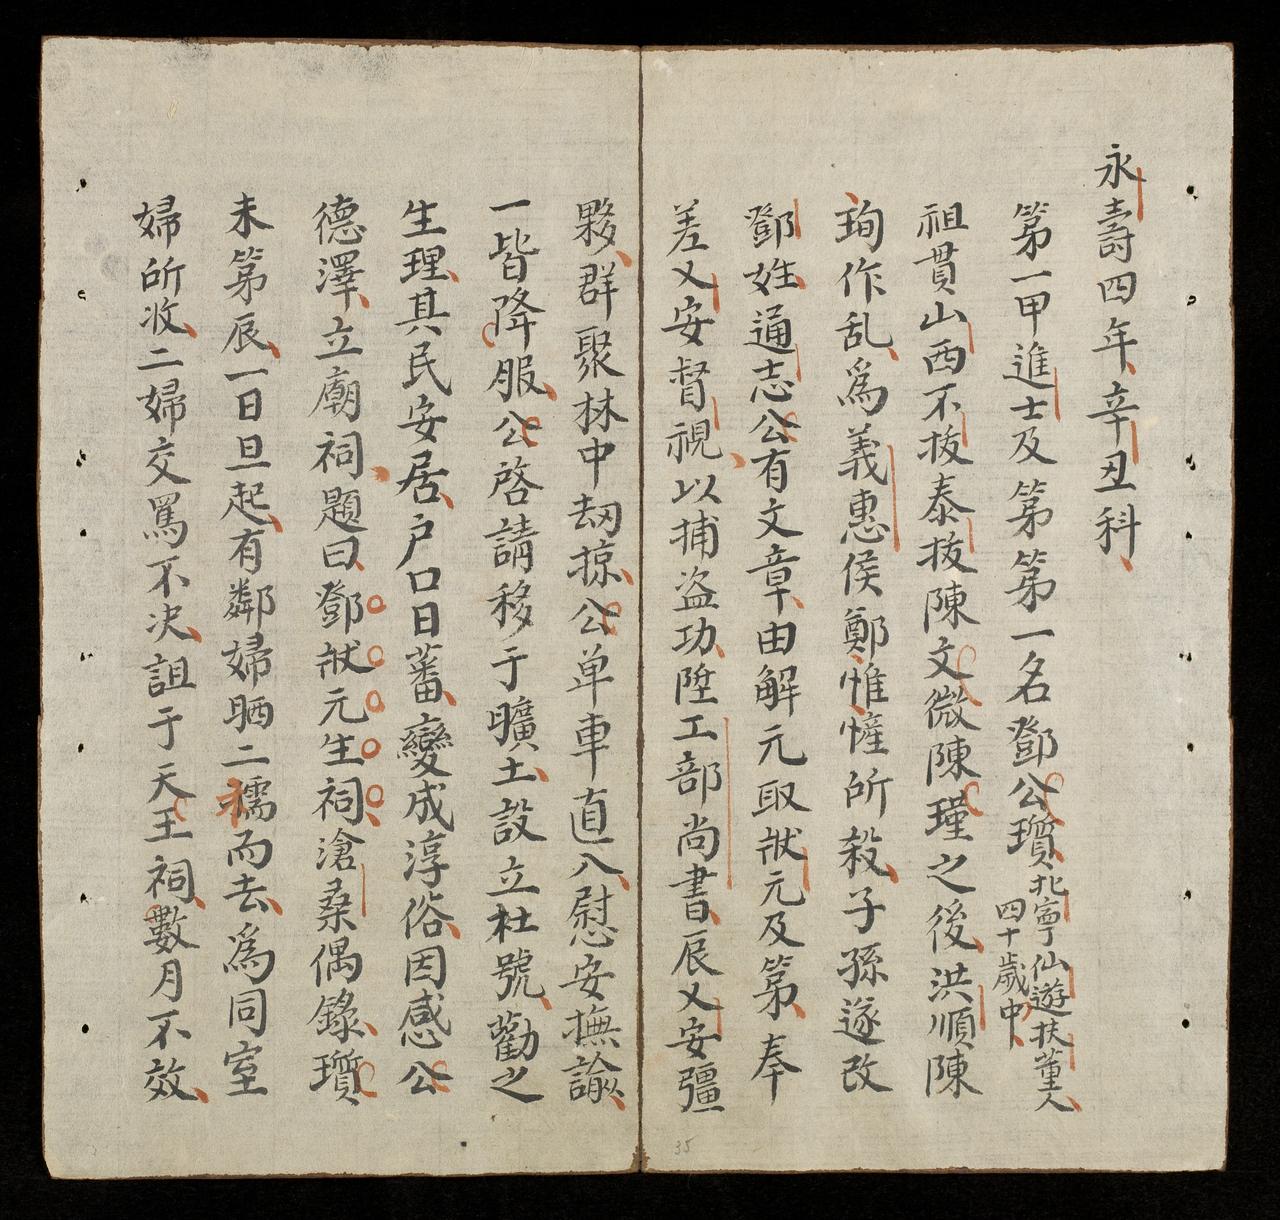 永壽四年辛丑科
第一甲進士及第第一名鄧公瓚北寧仙遊扶董人四十歲中
祖貫山西不拔泰拔陳文微陳瑾之後洪順陳
珣作乱為義惠侯鄭惟㦃所殺子孫遂改
鄧姓通志公有文章由解元取狀元及第奉
差乂安督視以捕盗功陞工部尚書辰乂安彊
夥群聚林中刼掠公单車直入慰安撫諭
一皆降服公啓請移于曠土設立社號勸之
生理其民安居户口日蕃變成淳俗因感公
德澤立廟祠題曰鄧狀元生祠滄桑偶錄瓚
未第辰一日旦起有鄰婦晒二襦而去為同室
婦所收二婦交罵不决詛于天王祠數月不效
35